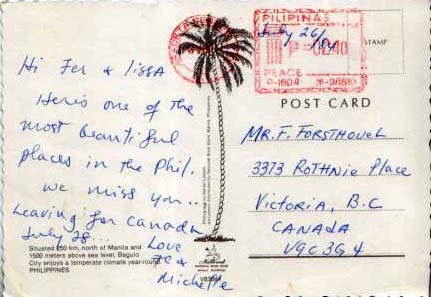 Hi Fer & lissa
Here's one of the
most beautiful
places in the Phil.
we miss you..
Leaving for Canada
July 28...
Love
Michelle
Situated 250 km. north of Manila and
1500 meters above sea level, Baguio
City enjoys a temperate climate year-round.
PHILIPPINES
PILIPINAS
July 26/84
P 02.40
PEACE
STAMP
POST CARD
MR. F. FORSTHOVEL
3373 ROTHNIE Place
Victoria, B.C
CANADA
V9C3G4